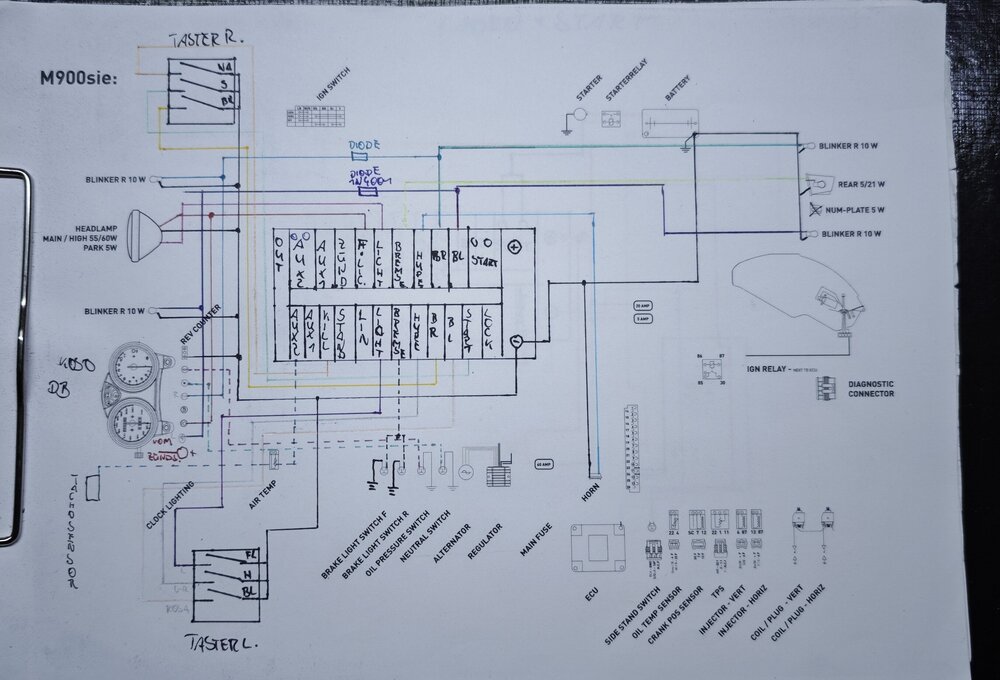 TASTER R.
M900sie:
NA
S
BR
IGN SWITCH
STARTER
STARTERRELAY
BATTERY
DIODE
DIODE
1N4001
BLINKER R 10 W
BLINKER R 10 W
REAR 5/21 W
NUM-PLATE 5 W
BLINKER R 10 W
HEADLAMP
MAIN / HIGH 55/60W
PARK 5W
OUT
AUX2
AUX1
ZÜND
LICHT
BREMSE
HUPE
BR
BL
START
+
BLINKER R 10 W
REV COUNTER
AUX2
AUX1
KILL
STAND
LIN
LIGHT
BREMSE
HUPE
BR
BL
START
LOCK
-
30 AMP
5 AMP
86 87
85 30
IGN RELAY - NEXT TO ECU
DIAGNOSTIC
CONNECTOR
KOSO
DB
VOM
ZÜNDS. +
TACHOSENSOR
CLOCK LIGHTING
AIR TEMP
40 AMP
BRAKE LIGHT SWITCH F
BRAKE LIGHT SWITCH R
OIL PRESSURE SWITCH
NEUTRAL SWITCH
ALTERNATOR
REGULATOR
MAIN FUSE
HORN
ECU
SIDE STAND SWITCH
OIL TEMP SENSOR
CRANK POS SENSOR
TPS
INJECTOR - VERT
INJECTOR - HORIZ
COIL / PLUG - VERT
COIL / PLUG - HORIZ
FL
H
BL
TASTER L.